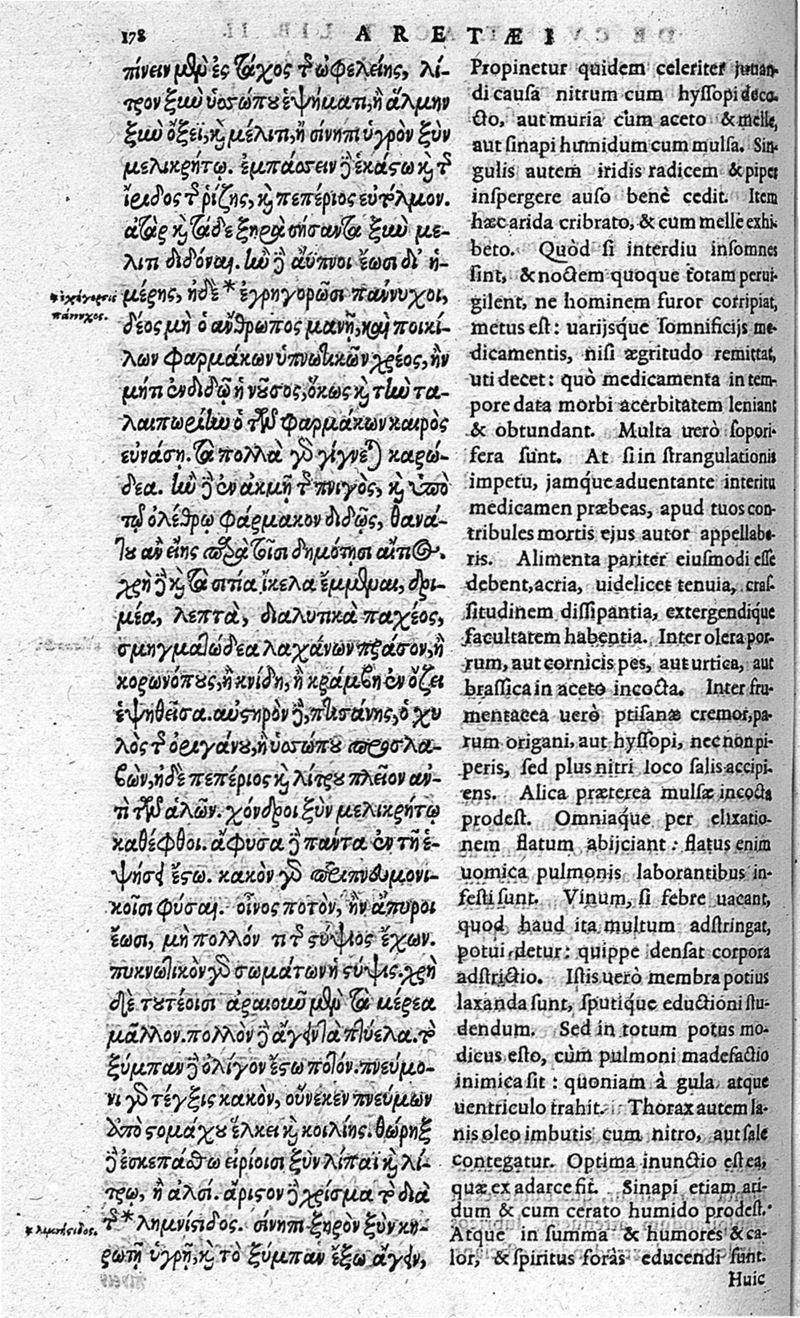 178
ARETÆI
πίνειν μὲν ἐς τάχος τῆς ὠφελείης, λί-
τρον ξὺν ὑσσώπου ἑψήματι, ἢ ἅλμην
ξὺν ὄξεϊ, καὶ μέλιτι, ἢ σίνηπι ὑγρὸν ξὺν
μελικρήτῳ. ἐμπάσσειν δὲ ἑκάστῳ καὶ τῆς
ἴριδος τῆς ῥίζης, καὶ πεπέριος εὔτολμον.
ἀτὰρ καὶ τάδε ξηρὰ σήσαντα ξὺν μέ-
λιτι διδόναι. ἢν δὲ ἄϋπνοι ἔωσι δι' ἡ-
μέρης, ἠδὲ * ἐγρηγορῶσι παννυχοι,
δέος μὴ ὁ ἄνθρωπος μανῇ, καὶ ποικί-
λων φαρμάκων ὑπνωτικῶν χρέος, ἢν
μήτι ἐνδιδῷ ἡ νοῦσος, ὅκως καὶ τὴν τα-
λαιπωρίην ὁ τῶν φαρμάκων καιρὸς
εὐνάσῃ. τὰ πολλὰ γὰρ γίγνεται καρώ-
δεα. ἢν δὲ ἐν ἀκμῇ τῆς πνιγὸς, καὶ ὑπὸ
τῷ ὀλέθρῳ φάρμακον διδῷς, θανά-
του ἂν εἴης παρὰ τοῖσι δημότῃσι αἴτιος.
χρὴ δὲ καὶ τὰ σιτία ἴκελα ἔμμεναι, δρι-
μέα, λεπτὰ, διαλυτικὰ πάχεος,
σμηγματώδεα λαχάνων πράσον, ἢ
κορωνόπους, ἢ κνίδη, ἢ κράμβη ἐν ὄξει
ἑψηθεῖσα. αὐστηρὸν δὲ, πτισάνης, ὁ χυ
λὸς τῆς ὀριγάνου, ἢ ὑσσώπου προσλα-
βὼν, ἠδὲ πεπέριος καὶ λίτρου πλεῖον ἀν-
τὶ τῶν ἁλῶν. χόνδροι ξὺν μελικρήτῳ
καθεφθοι. ἄφυσα δὲ πάντα ἐν τῇ ἑ-
ψήσει ἔστω. κακὸν γὰρ περιπνευμονι-
κοῖσι φῦσαι. οἶνος ποτὸν, ἢν ἄπυροι
ἔωσι, μὴ πολλόν τι τῆς στύψιος ἔχων.
πυκνωτικὸν γὰρ σωμάτων ἡ στύψις. χρὴ
δὲ τουτέοισι ἀραιοῦν μὲν τὰ μέρεα
μᾶλλον. πολλὸν δὲ ἄγειν τὰ πτύελα. τὸ
ξύμπαν δὲ ὀλίγον ἔστω ποτόν. πνεύμο-
νι γὰρ τέγξις κακὸν, οὕνεκεν πνεύμων
ἀπὸ στομάχου ἕλκει καὶ κοιλίης. θώρηξ
δὲ ἐσκεπάσθω εἰρίοισι ξὺν λίπαϊ καὶ λί-
τρῳ, ἢ ἁλσί. ἄριστον δὲ χρίσμα τὸ διὰ
τῆς * λημνίστιδος. σίνηπι ξηρὸν ξὺν κη-
ρωτῇ ὑγρῇ, καὶ τὸ ξύμπαν ἔξω ἄγειν,
Propinetur quidem celeriter juuan-
di causa nitrum cum hyssopi deco
cto, aut muria cum aceto & melle,
aut sinapi humidum cum mulsa. Sin-
gulis autem iridis radicem & piper
inspergere auso benè cedit. Item
hæc arida cribrato, & cum melle exhi-
beto. Quòd si interdiu insomnes
sint, & noctem quoque totam perui-
gilent, ne hominem furor corripiat,
metus est: uarijsque somnificijs me-
dicamentis, nisi ægritudo remittat,
uti decet: quò medicamenta in tem-
pore data morbi acerbitatem leniant
& obtundant. Multa uerò sopori-
fera sunt. At si in strangulationis
impetu, jamque aduentante interitu
medicamen præbeas, apud tuos con-
tribules mortis ejus autor appellabe-
ris. Alimenta pariter eiusmodi esse
debent, acria, uidelicet tenuia, cras-
situdinem dissipantia, extergendique
facultatem habentia. Inter olera por-
rum, aut cornicis pes, aut urtica, aut
brassica in aceto incocta. Inter fru-
mentacea uerò ptisanæ cremor, pa-
rum origani, aut hyssopi, nec non pi-
peris, sed plus nitri loco salis accipi-
ens. Alica præterea mulsæ incocta
prodest. Omniaque per elixatio-
nem flatum abijciant: flatus enim
uomica pulmonis laborantibus in-
festi sunt. Vinum, si febre uacant,
quod haud ita multum adstringat,
potui detur: quippe densat corpora
adstrictio. Istis uerò membra potius
laxanda sunt, sputique eductioni stu-
dendum. Sed in totum potus mo-
dicus esto, cùm pulmoni madefactio
inimica sit: quoniam à gula atque
uentriculo trahit. Thorax autem la-
nis oleo imbutis cum nitro, aut sale
contegatur. Optima inunctio est ea,
quæ ex adarce fit. Sinapi etiam ari-
dum & cum cerato humido prodest.
Atque in summa & humores & ca-
lor, & spiritus foràs educendi sunt.
Huic
πάννυχος.
* λιμνήστιδος.